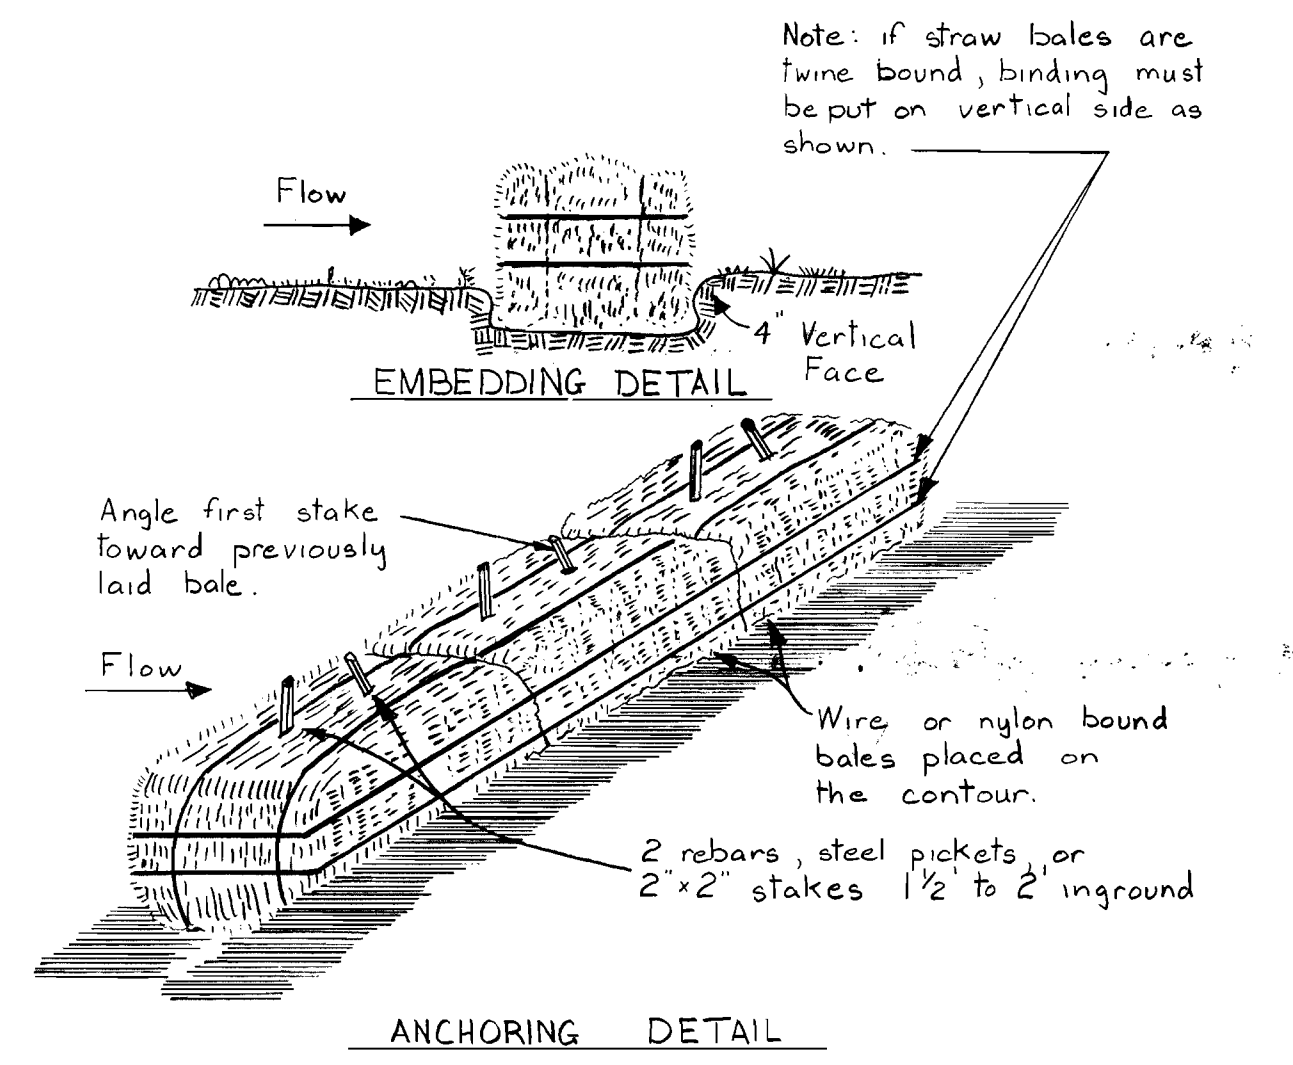 Note: if straw bales are
twine bound, binding must
be put on vertical side as
shown.
Flow
4" Vertical
Face
EMBEDDING DETAIL
Angle first stake
toward previously
laid bale.
Flow
Wire or nylon bound
bales placed on
the contour.
2 rebars, steel pickets, or
2"x2" stakes 1 1/2' to 2' inground
ANCHORING DETAIL